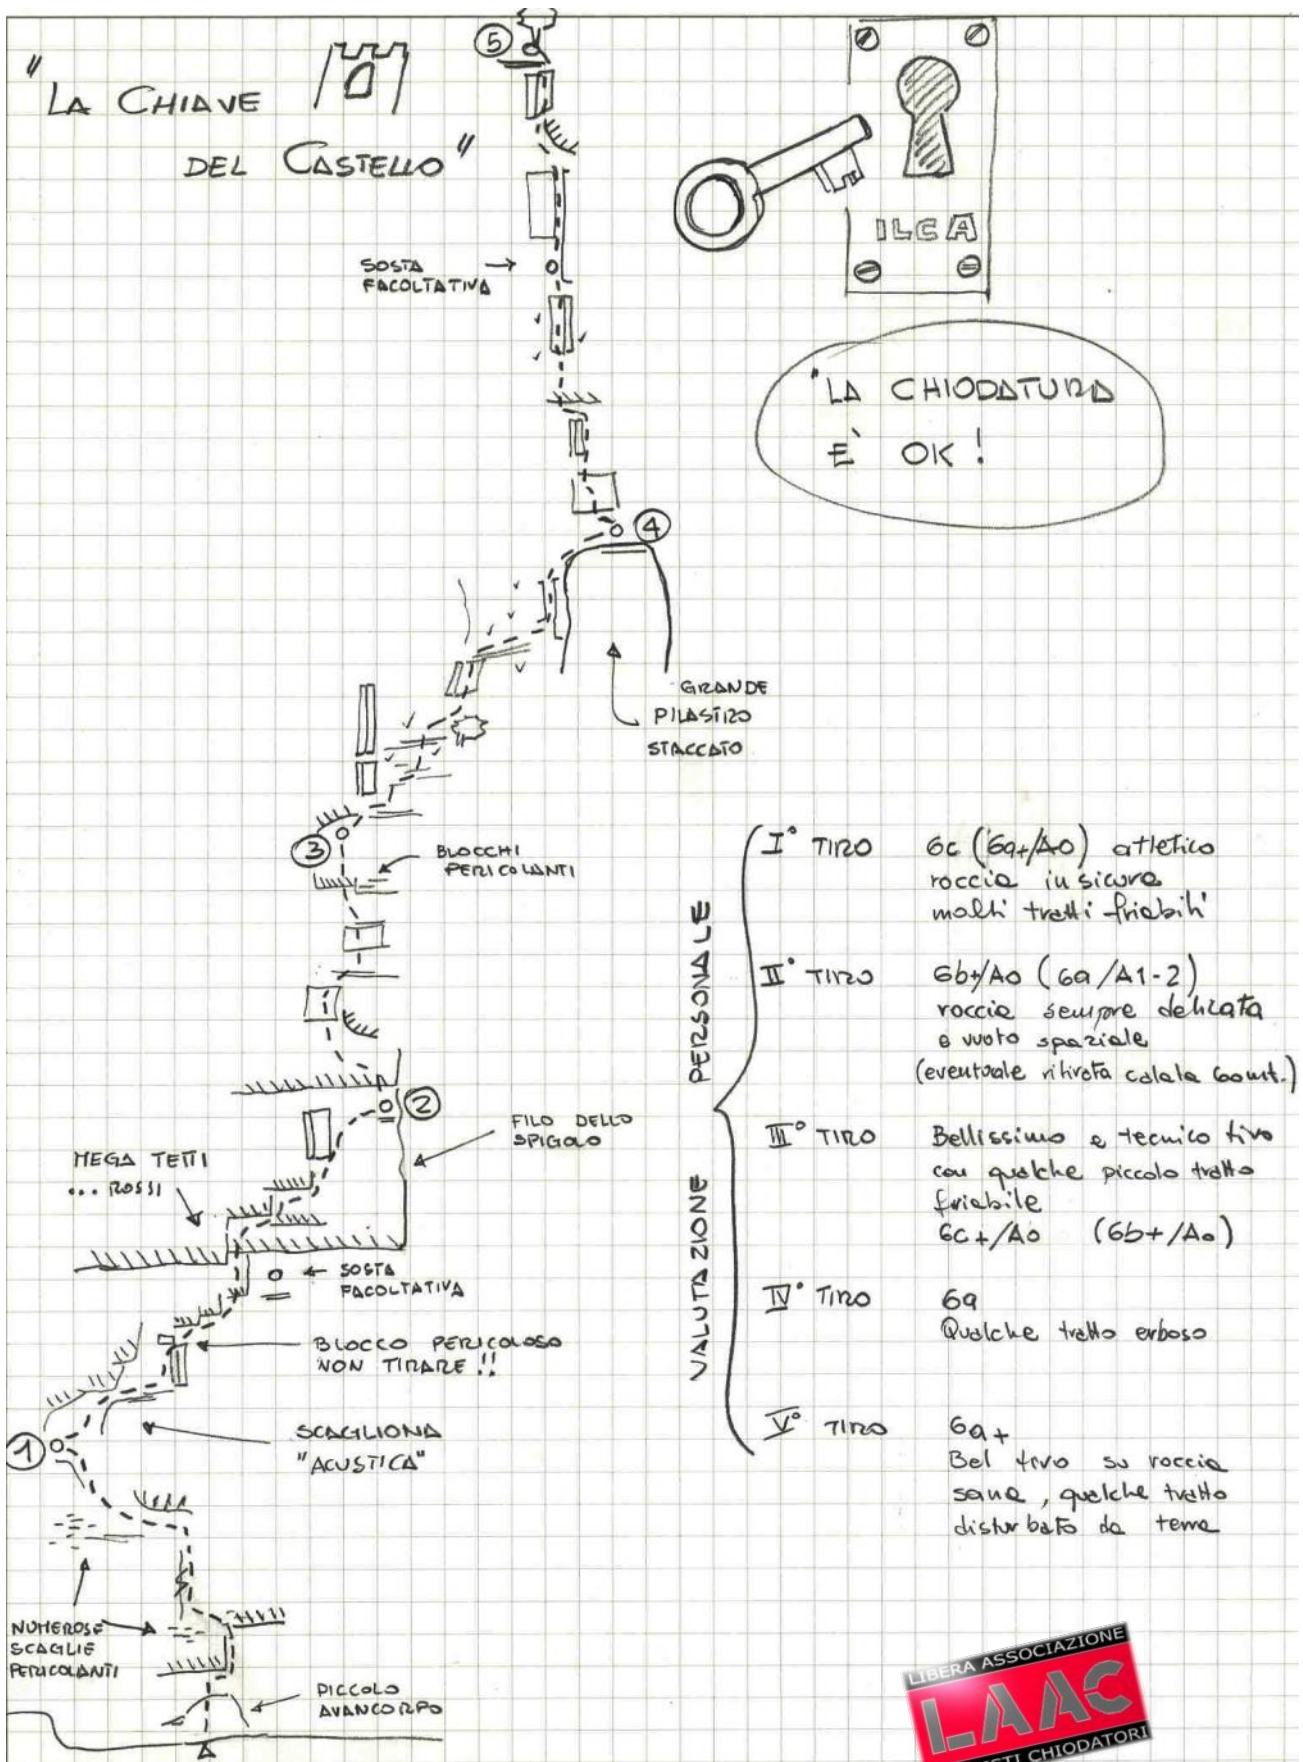 "LA CHIAVE
DEL CASTELLO"
5
ILCA
SOSTA
FACOLTATIVA
"LA CHIODATURA
E' OK!
4
GRANDE
PILASTRO
STACCATO
3
BLOCCHI
PERICOLANTI
2
FILO DELLO
SPIGOLO
MEGA TETTI
... ROSSI
SOSTA
FACOLTATIVA
BLOCCO PERICOLOSO
NON TIRARE !!
1
SCAGLIONA
"ACUSTICA"
NUMEROSE
SCAGLIE
PERICOLANTI
PICCOLO
AVANCORPO
VALUTAZIONE PERSONALE
I° TIRO 6c (6a+/A0) atletico
roccia insicura
molti tratti friabili
II° TIRO 6b+/A0 (6a/A1-2)
roccia sempre delicata
e vuoto spaziale
(eventuale ritirata calata 60mt.)
III° TIRO Bellissimo e tecnico tiro
con qualche piccolo tratto
friabile
6c+/A0 (6b+/A0)
IV° TIRO 6a
Qualche tratto erboso
V° TIRO 6a+
Bel tiro su roccia
sana, qualche tratto
disturbato da terra
LIBERA ASSOCIAZIONE
LAAC
CHIODATORI